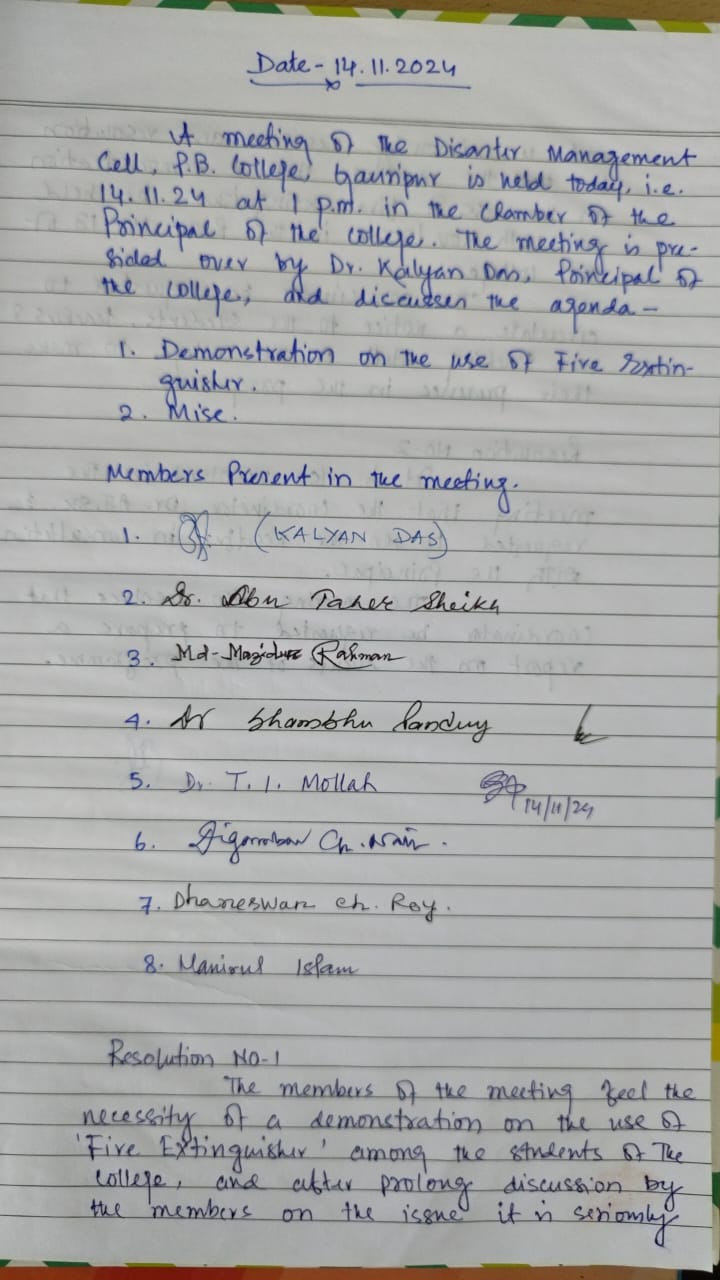 Date - 14.11.2024
A meeting of the Disaster Management
Cell, P.B. College, Gauripur is held today, i.e.
14.11.24 at 1 p.m. in the chamber of the
Principal of the college. The meeting is pre-
sided over by Dr. Kalyan Das, Principal of
the college, and discusses the agenda -
1. Demonstration on the use of Fire Extin-
guisher.
2. Misc.
Members Present in the meeting.
1. (KALYAN DAS)
2. Dr. Abu Taher Sheikh
3. Md- Mazidur Rahman
4. Dr Shambhu Pandey
5. Dr. T. I. Mollah 14/11/24
6. Digambar Ch.
7. Dhaneswar ch. Roy.
8. Manirul Islam
Resolution No-1
The members of the meeting feel the
necessity of a demonstration on the use of
'Fire Extinguisher' among the students of The
College, and after prolong discussion by
the members on the issue it is seriously